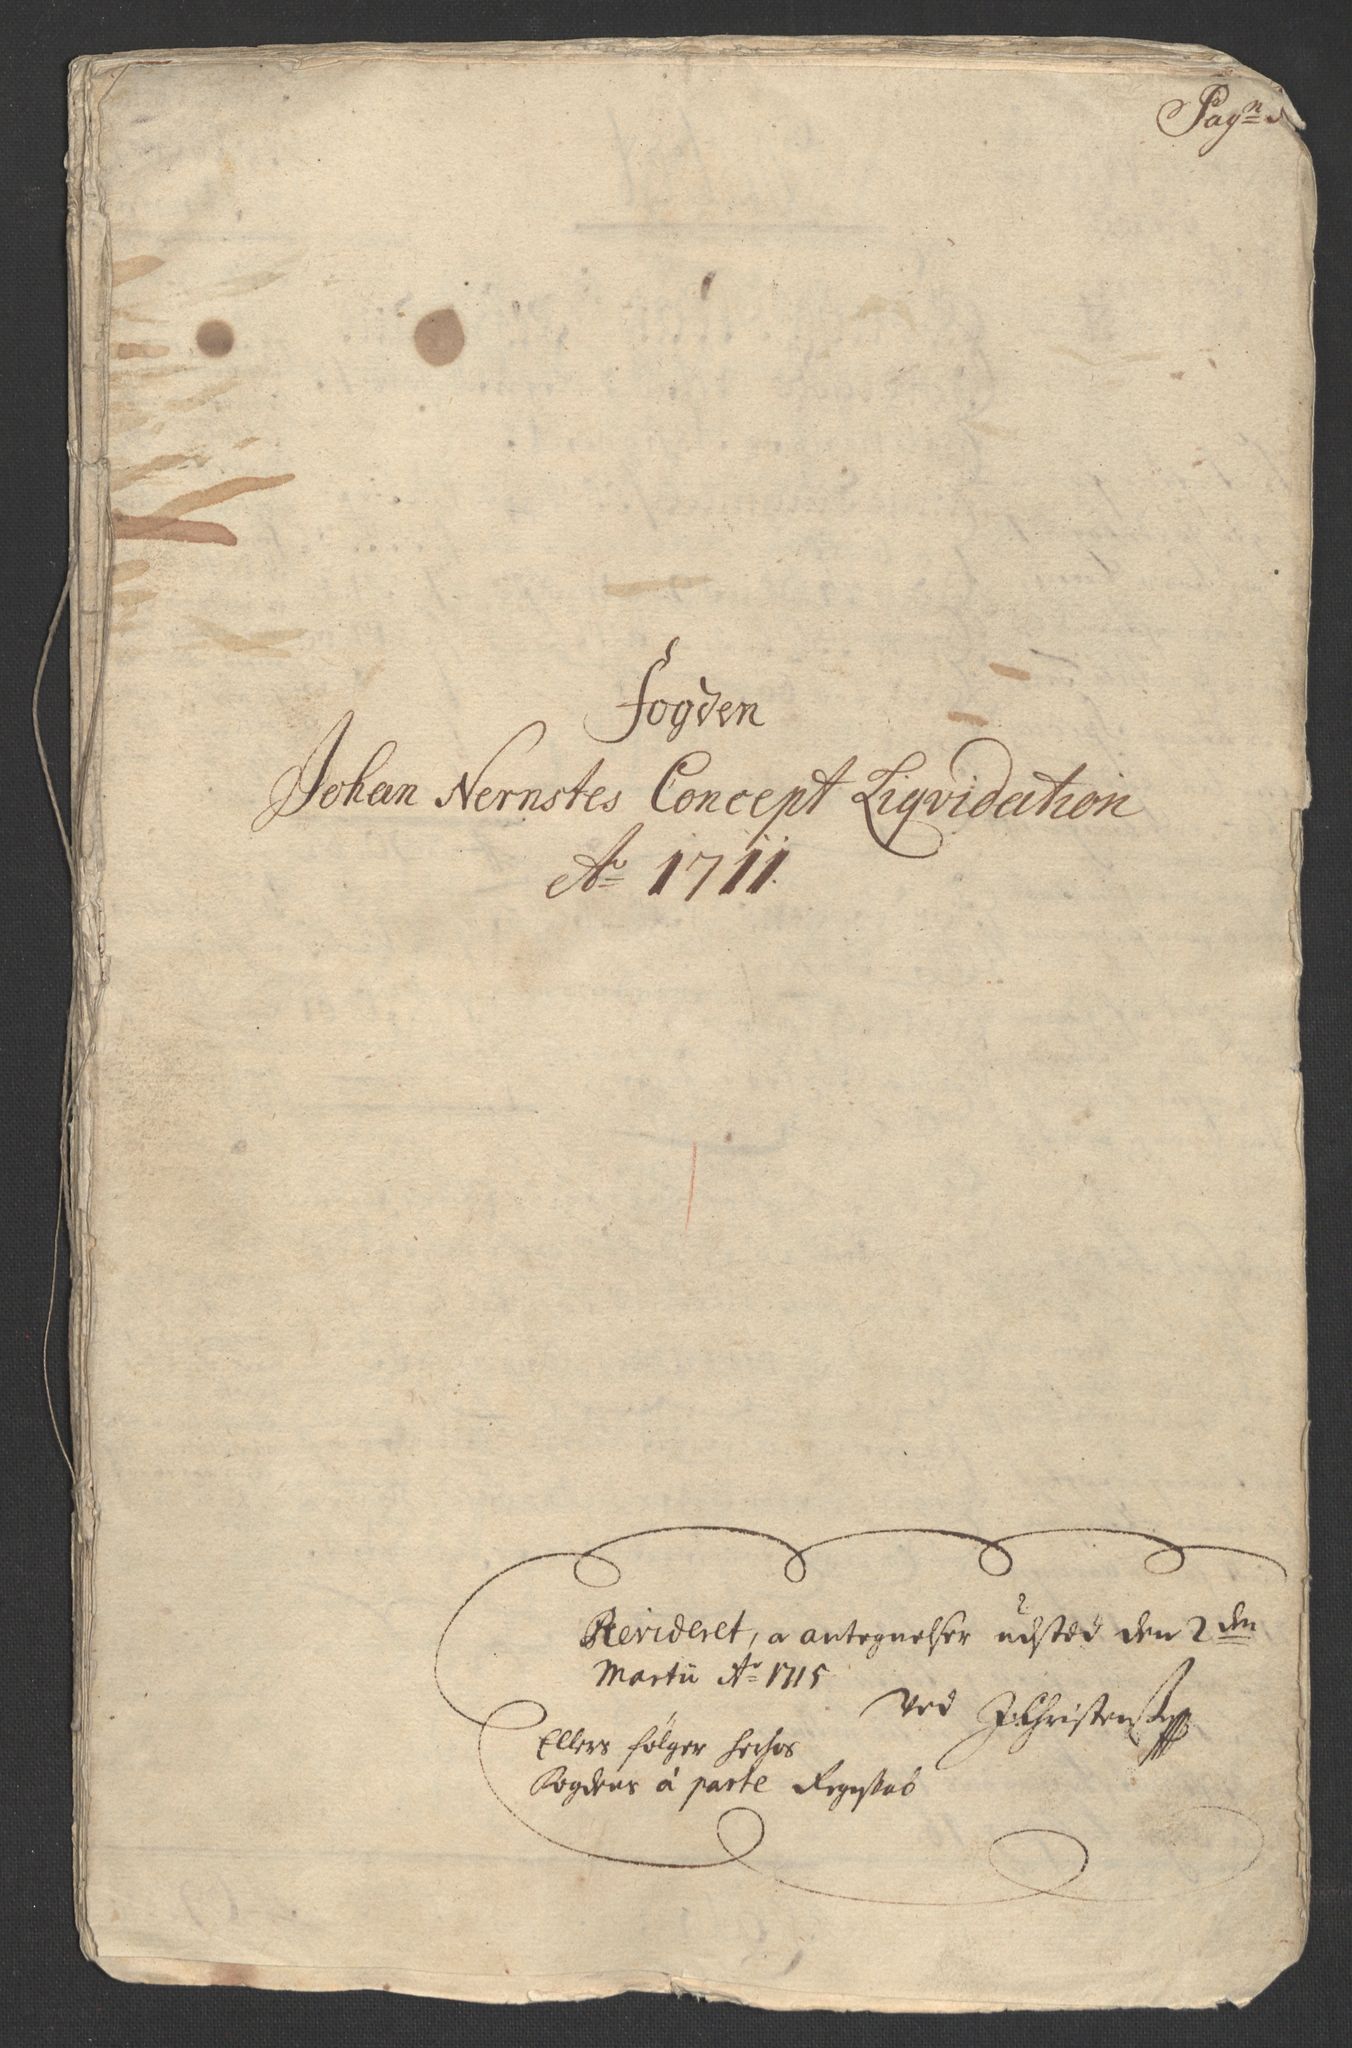 Pagn
Fogden
Johan Nernstes Concept Liqvidation
Ao 1711.
Revideret, a antegnelser udsted den 2den
Martii Ao 1715
Ved JChristensen
Ellers følger herhos
Fogdens à parte Regnskab